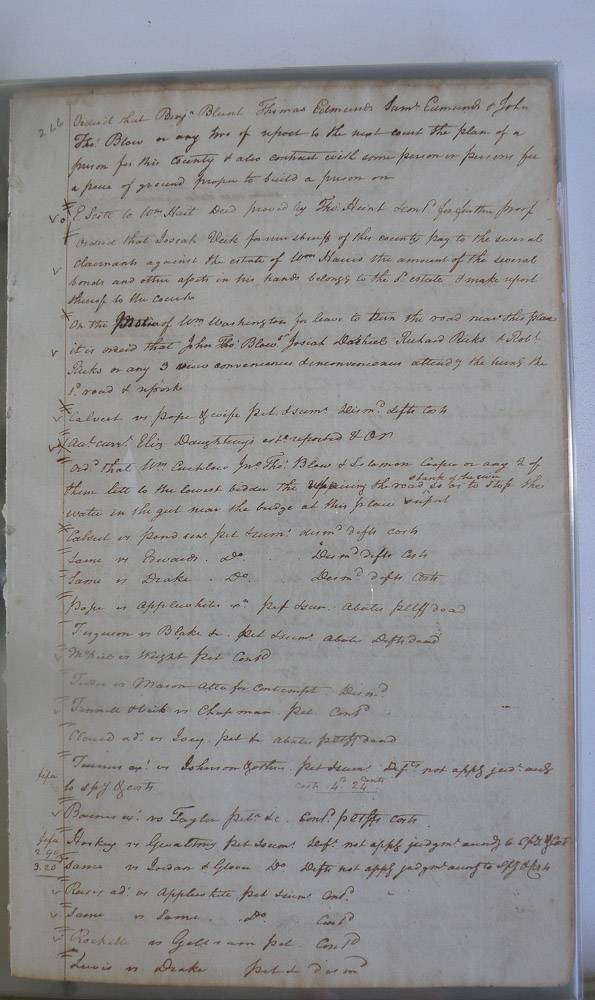 266
Ordered that Benjᵃ Blunt Thomas Edmunds Samˡ Edmunds & John
Thoˢ Blow or any two of report to the next court the plan of a
prison for this County & also contract with some person or persons for
a piece of ground proper to build a prison on
to Wm Hart Deed proved by Thoˢ Hunt & for further proof
Ordered that Josiah Vick former sheriff of this county pay to the several
claimants against the estate of Wm the amount of the several
bonds and other assets in his hands belongg to the sᵈ estate & make report
thereof to the court
On the Motion of Wm Washington for leave to turn the road near this place
it is ordered that John Thoˢ Blow Josiah Richard Ricks & Robᵗ
Ricks or any 3 view conveniences & inconveniences attendg the turng the
sᵈ road & report
Calvert vs Pope & wife pet & sumˢ Dismᵈ defts costs
Eliz Daughtreys estᵉ reported & OR
Ordᵈ that Wm Jnᵒ Thoˢ Blow & Solomon Cooper or any 2 of
them lett to the lowest bidder the the road & bank of the river so as to stop the
water in the gut near the bridge at this place & report
Calvert vs pet & sumˢ dismᵈ defts costs
Same vs Edwards Do Dismᵈ defts costs
Same vs Drake Do. Dismᵈ defts costs
Pope vs Applewhites pet & sumˢ abates pltff dead
Ferguson vs Blake &c. pet & sumˢ abates Defts dead
vs Wright pet Contᵈ
vs Mason atta for contempt Dismᵈ
& Vick vs Chapman pet Contᵈ
adˢ vs Ivey pet &c abates pltff dead
exˢ vs Johnson & others pet & sumˢ Defts not appg judᵗ accᵍ
fifa
to spʸ & costs costs 4ᴰ 24 cents
vs Taylor petⁿ &c. Contᵈ pltffs costs
fifa
vs Gwaltney pet & sumˢ Deft not appg judgmᵗ accordg to spʸ & Cost
2.40
3.20
Same vs Jordan & Glover Do Defts not appg judgmᵗ accordg to spʸ & Costs
adˢ vs Applewhite pet & sumˢ Contᵈ
Same vs Same. Do. Contᵈ
Rochelle vs pet Contᵈ
Lewis vs Drake pet &c dismᵈ